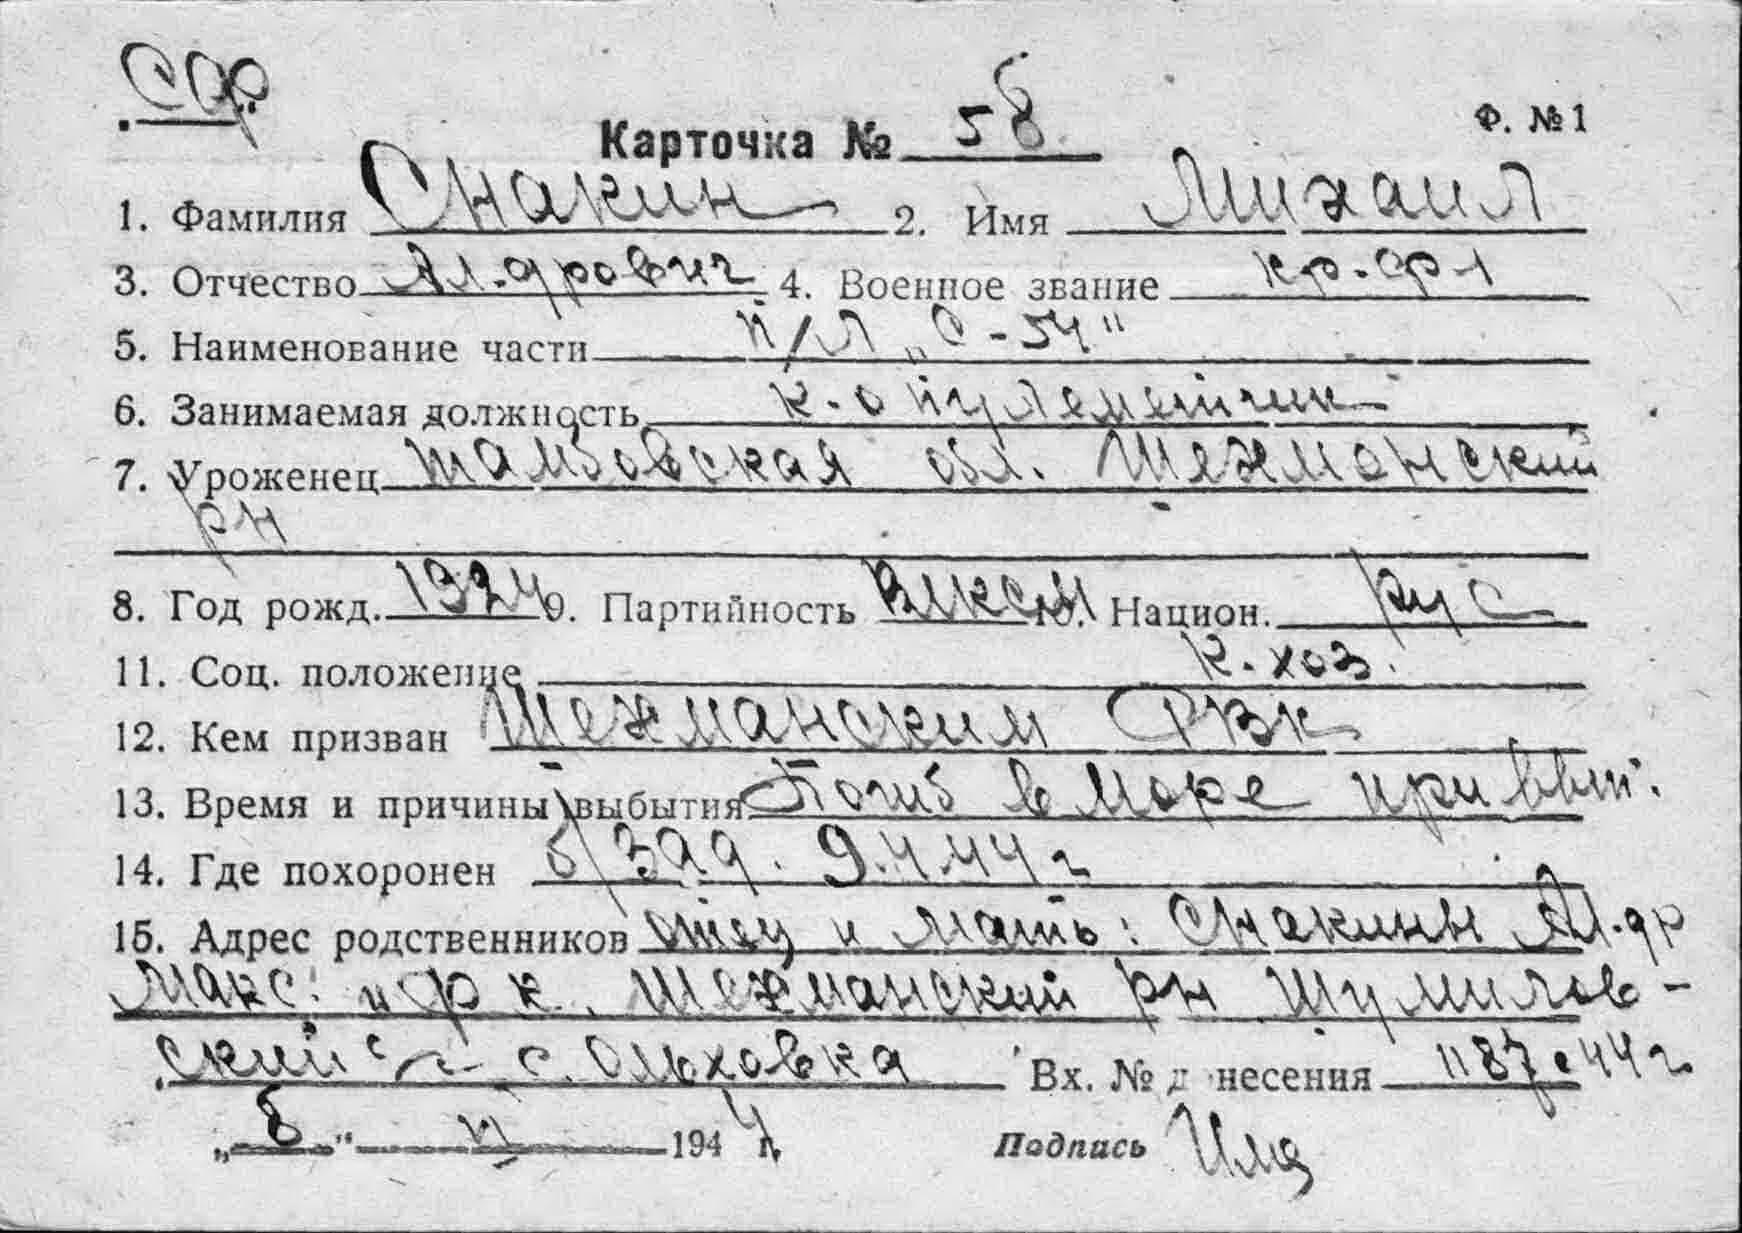 СФ
Ф. № 1
Карточка № 58
1. Фамилия Снакин 2. Имя Михаил
3. Отчество Ал-дрович 4. Военное звание кр-фл
5. Наименование части п/л „С-54"
6. Занимаемая должность к-о пулеметчик
7. Уроженец Тамбовская обл. Шехманский
рн
8. Год рожд. 1924 9. Партийность ВЛКСМ 10. Национ. рус
11. Соц. положение к-хоз.
12. Кем призван Шехманским РВК
13. Время и причины выбытия Погиб в море при вып.
14. Где похоронен б/зад. 9.4.44 г
15. Адрес родственников отец и мать: Снакины Ал-др
Макс. и Шехманский рн Шумилов-
ский с/с с. Ольховка Вх. № донесения 1187с 44 г.
„8" VI 1944 г. Подпись